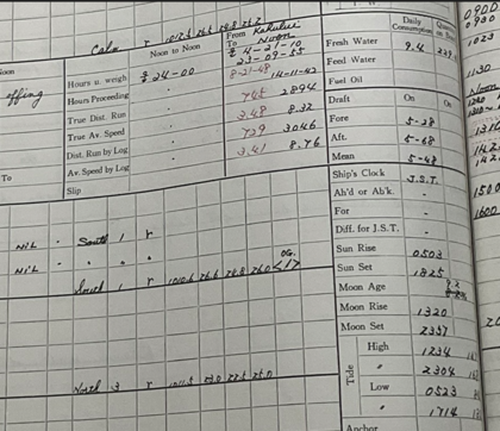 Calm r 1012.5 26.6 24.8 26.2
Noon to Noon
From Kahului
To Noon
offing
Hours u. weigh 24-00 4-21-10
23-09-55
Hours Proceeding 8-21-48 14-11-42
True Dist. Run 745 2894
True Av. Speed 3.48 8.32
Dist. Run by Log 729 3046
Av. Speed by Log 3.41 8.76
Slip
To
NIL - South 1 r
NIL - " " "
South 1 r 1010.6 26.6 24.8 26.0 <17
OG.
North 3 r
Daily
Consumption
Fresh Water 9.4
Feed Water
Fuel Oil
Draft On On
Fore 5-28
Aft. 5-68
Mean 5-48
Ship's Clock J.S.T.
Ah'd or Ab'k. -
For -
Diff. for J.S.T. -
Sun Rise 0503
Sun Set 1825
Moon Age
Moon Rise 1320
Moon Set 2357
Tide
High 1234
" 2304
Low 0523
" 1714
Anchor
0900
0930
1023
1130
Noon
1500
1600